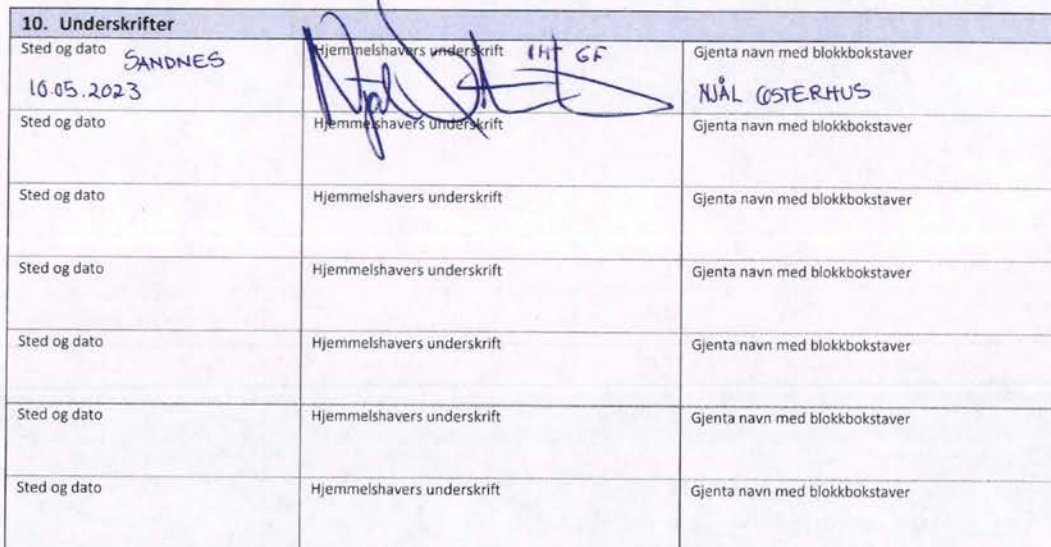 10. Underskrifter
Sted og dato Hjemmelshavers underskrift IHT GF Gjenta navn med blokkbokstaver
SANDNES
10.05.2023 NJÅL OSTERHUS
Sted og dato Hjemmelshavers underskrift Gjenta navn med blokkbokstaver
Sted og dato Hjemmelshavers underskrift Gjenta navn med blokkbokstaver
Sted og dato Hjemmelshavers underskrift Gjenta navn med blokkbokstaver
Sted og dato Hjemmelshavers underskrift Gjenta navn med blokkbokstaver
Sted og dato Hjemmelshavers underskrift Gjenta navn med blokkbokstaver
Sted og dato Hjemmelshavers underskrift Gjenta navn med blokkbokstaver